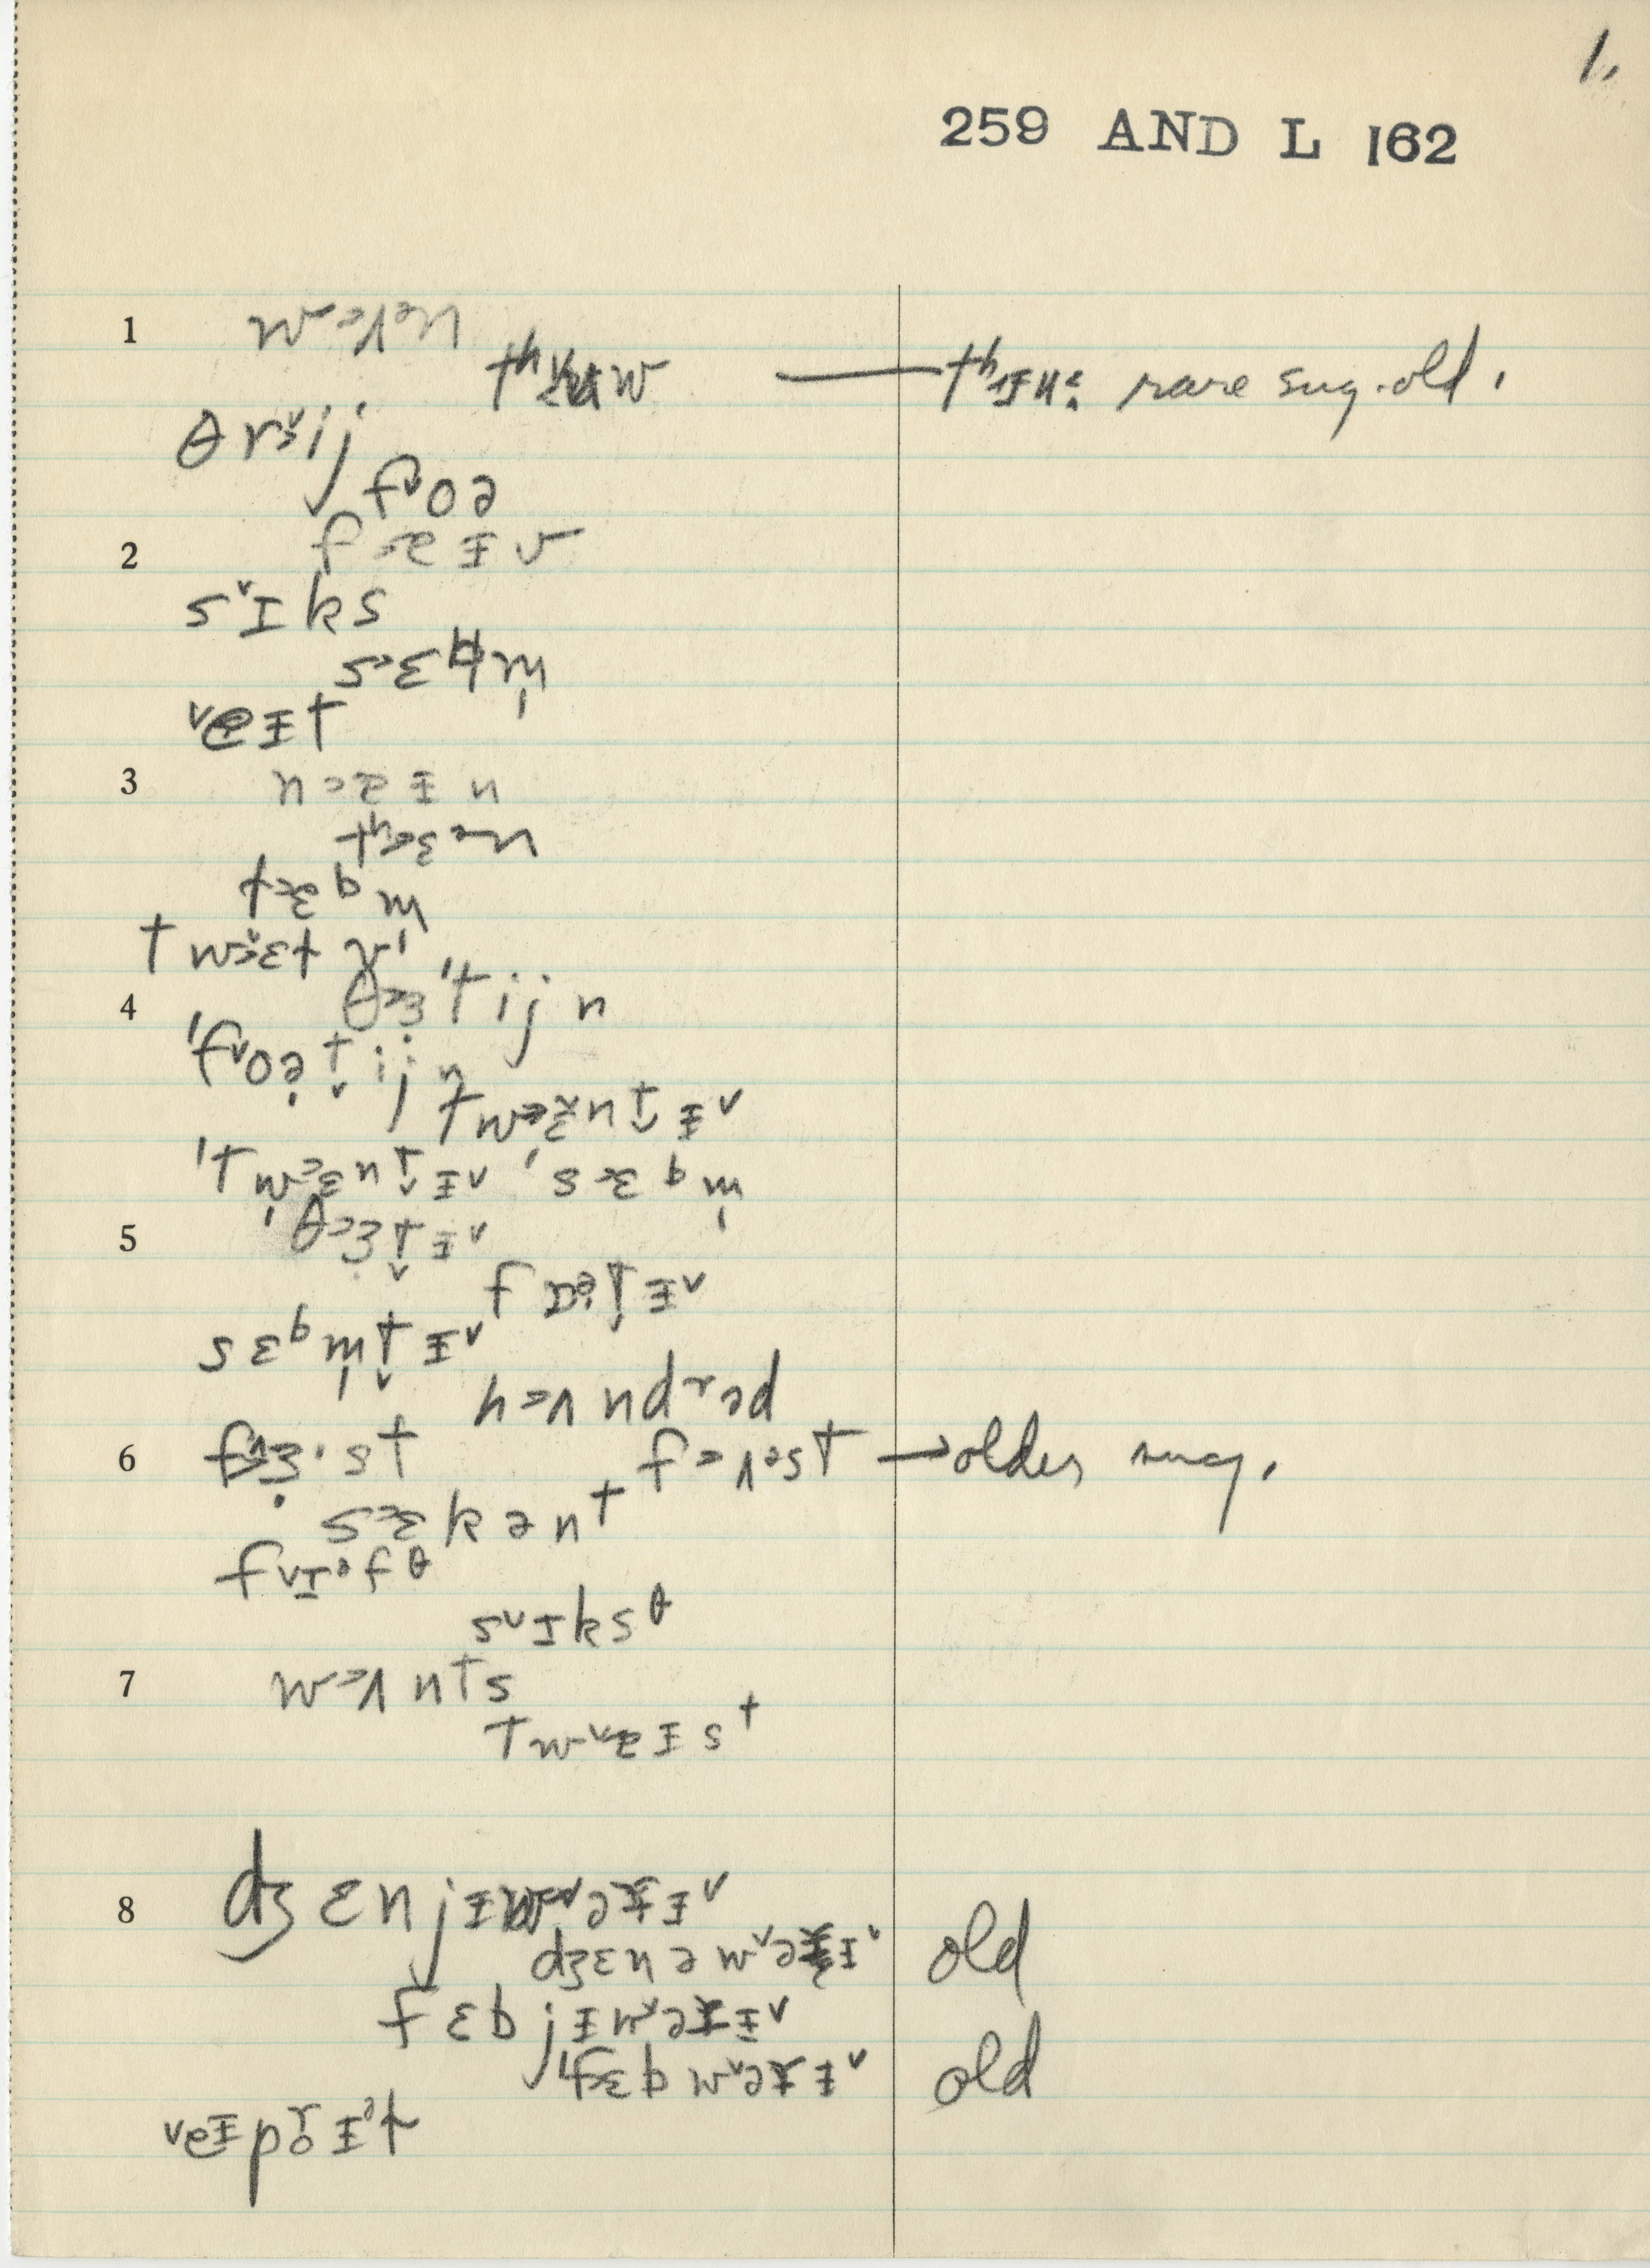 1.
259 AND L 162
1 w˃ʌᵊn
tʰʉw — tʰɪu: rare sug. old.
θr˅ij
f˅oə
2 f˃ɐɪv
s˅ɪks
s˃ɛbm̩
˅eɪt
3 n˃ɐɪn
tʰ˃ɛᵊn
t˃ɛbm̩
tw˃ɛt
4 θ˃ɜ'tijn
'f˅oət̬ijn
tw˃ɛnt̬ɪ˅
'tw˃ɛnt̬ɪ˅ 's˃ɛbm̩
5 θ˃ɜt̬ɪ˅
fɒət̬ɪ˅
sɛbm̩t̬ɪ˅
h˃ʌndrəd
6 f˃ɜ·st f˃ʌᵊst → older sug.
s˃ɛkənt
f˅ɪᵊfθ
s˅ɪksθ
7 w˃ʌnts
tw˅ɐɪst
8 dʒɛnjɪw˅əɾɪ˅
dʒɛnəw˅əɾɪ˅ old
fɛbjɪw˅əɾɪ˅
'f˃ɛbw˅əɾɪ˅ old
˅eɪprɪᵊɫ